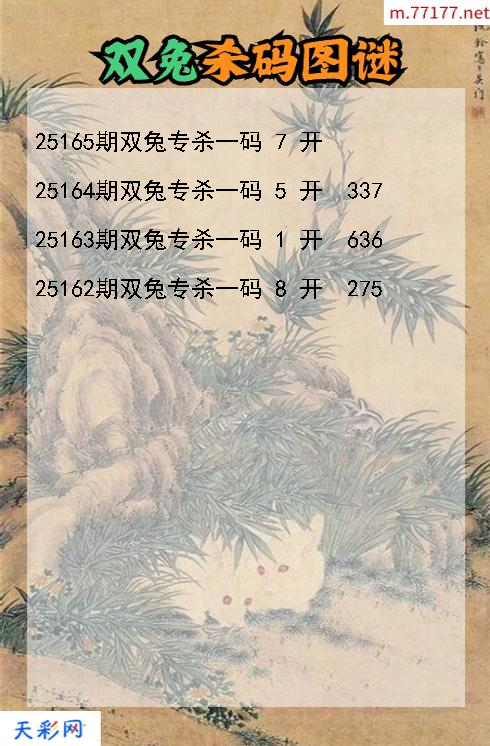 m.77177.net
双兔杀码图谜
25165期双兔专杀一码 7 开
25164期双兔专杀一码 5 开 337
25163期双兔专杀一码 1 开 636
25162期双兔专杀一码 8 开 275
天彩网